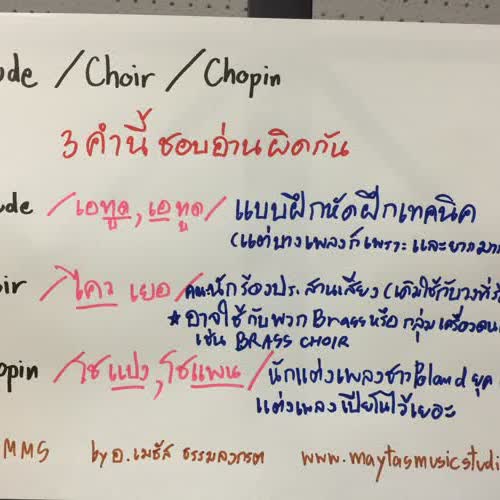 ude / Choir / Chopin
3 คำนี้ ชอบอ่านผิดกัน
ude / เอทูด, เอทูด / แบบฝึกหัดฝึกเทคนิค
(แต่บางเพลงก็เพราะ และยากมาก
ir / ไคว เยอ / คณะนักร้องประสานเสียง (เดิมใช้กับวงที่ร้
* อาจใช้กับพวก Brass หรือ กลุ่มเครื่องดน
เช่น BRASS CHOIR
opin / โชแปง, โชแพน / นักแต่งเพลงชาว Poland ยุค
แต่งเพลงเปียโนไว้เยอะ
MMS by อ.เมธัส ธรรมลงกรต www.maytasmusicstudi